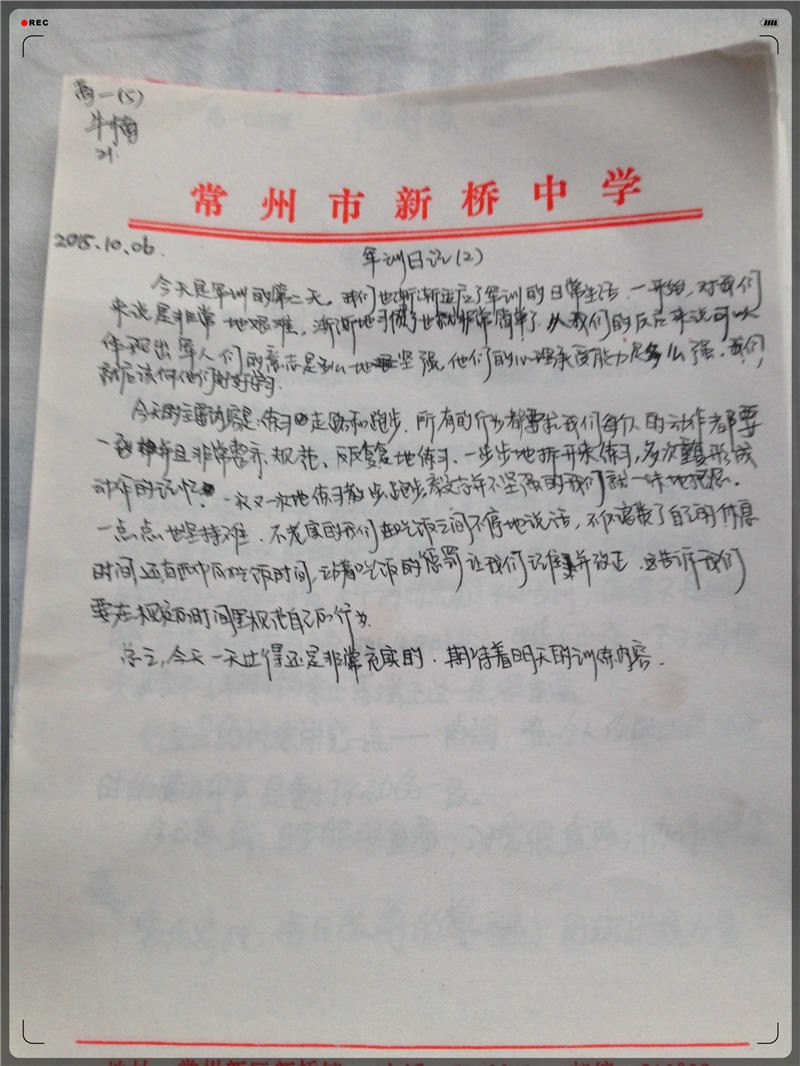 REC
高一(5)
牛楠
21.
常州市新桥中学
2015.10.06.
军训日记(2)
今天是军训的第二天。我们也渐渐适应了军训的日常生活.一开始,对我们
来说是非常地艰难,渐渐地习惯了也就非常简单了.从我们的反应来说可以
体现出军人们的意志是多么地坚强,他们的心理承受能力是多么强.我们
就应该向他们好好学习.
今天的主要内容是:练习走路和跑步.所有的行为都要求我们每个人的动作都要
一致并且非常整齐、规范、反反复复地练习、一步步地拆开来练习,多次重复形成
动作的记忆.一次又一次地练习 步、跑步 不坚强的我们就一味地抱怨.
一点点地坚持难.不老实的我们在吃饭之间不停地说话,不仅浪费了自己的休息
时间还有 吃饭时间,站着吃饭的惩罚让我们记住并改正.这告诉我们
要在规定的时间里规范自己的行为.
总之,今天一天过得还是非常充实的.期待着明天的训练内容.